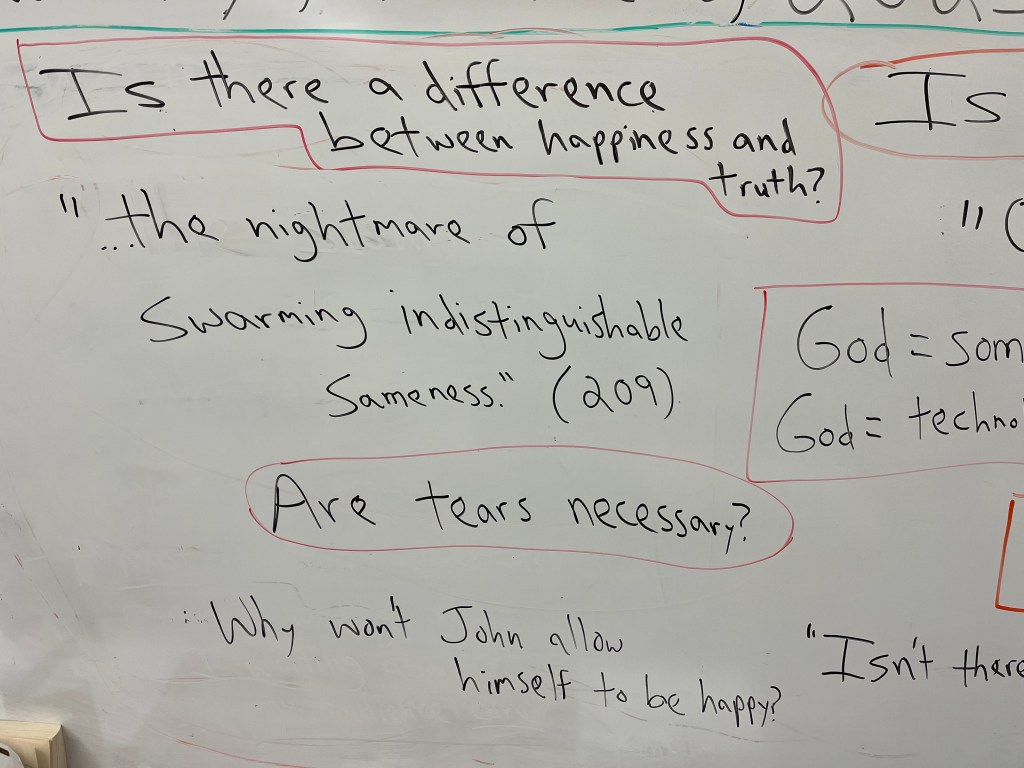 Is there a difference
between happiness and
truth?
"...the nightmare of
Swarming indistinguishable
Sameness." (209)
Are tears necessary?
Why won't John allow
himself to be happy?
Is
"
God = som
God = techno
"Isn't there